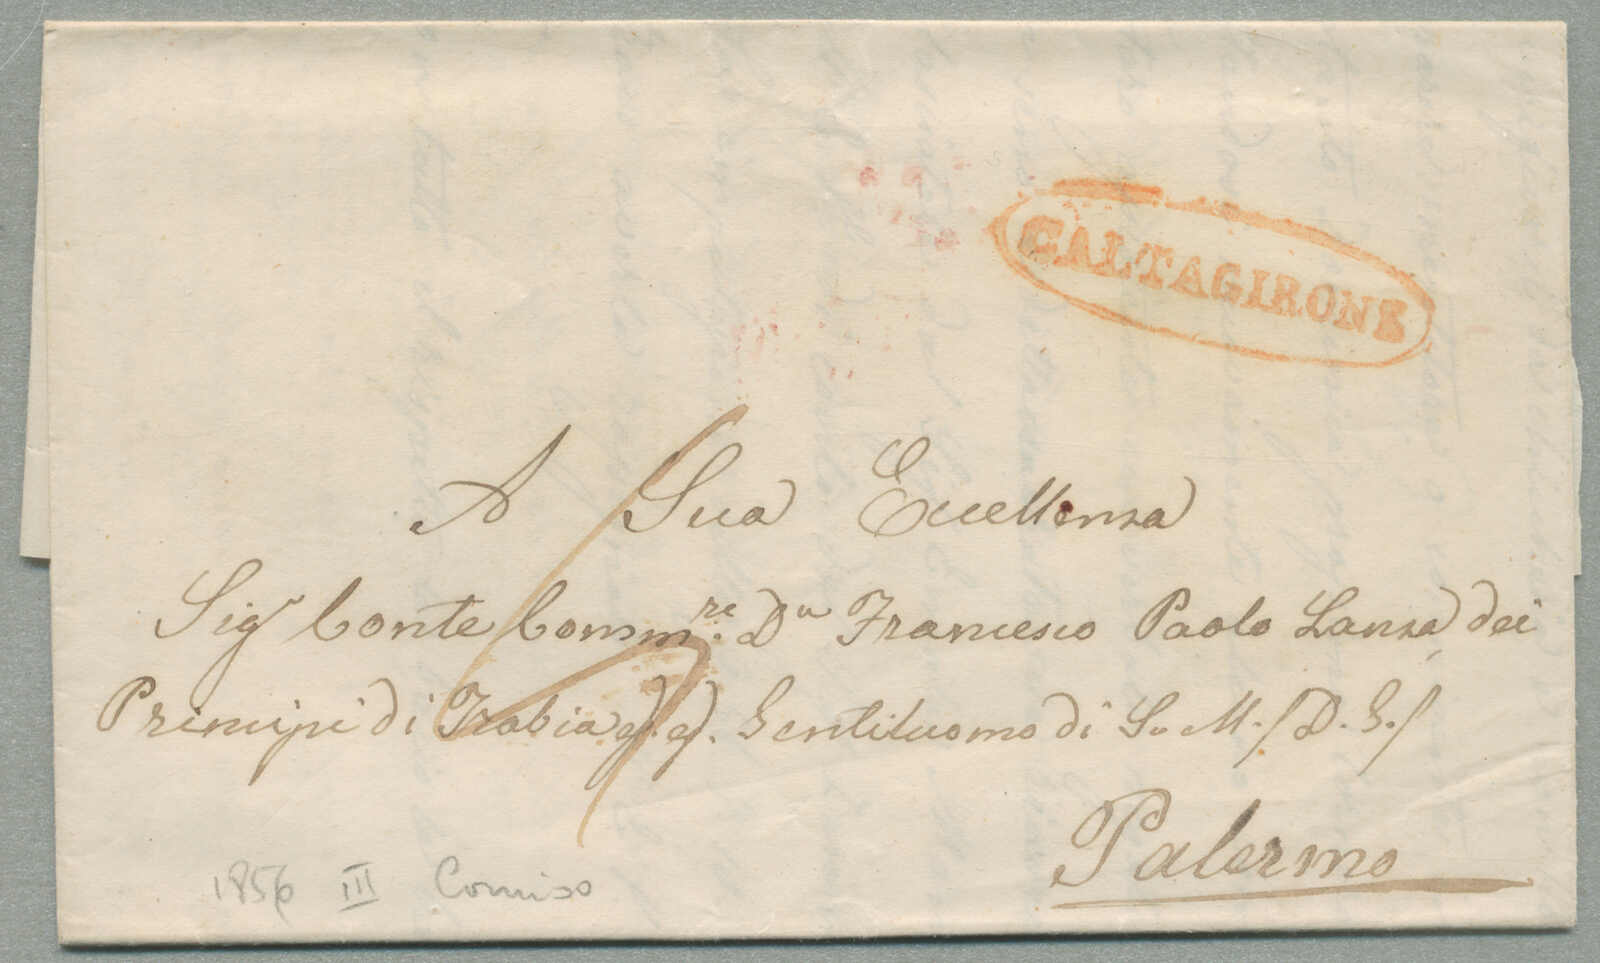 CALTAGIRONE
A Sua Eccellenza
Sigr Conte Commre. Dn Francesco Paolo Lanza dei
Principi di Trabia &. &. Gentiluomo di S. M. /D. G./
Palermo
1856 III Comiso